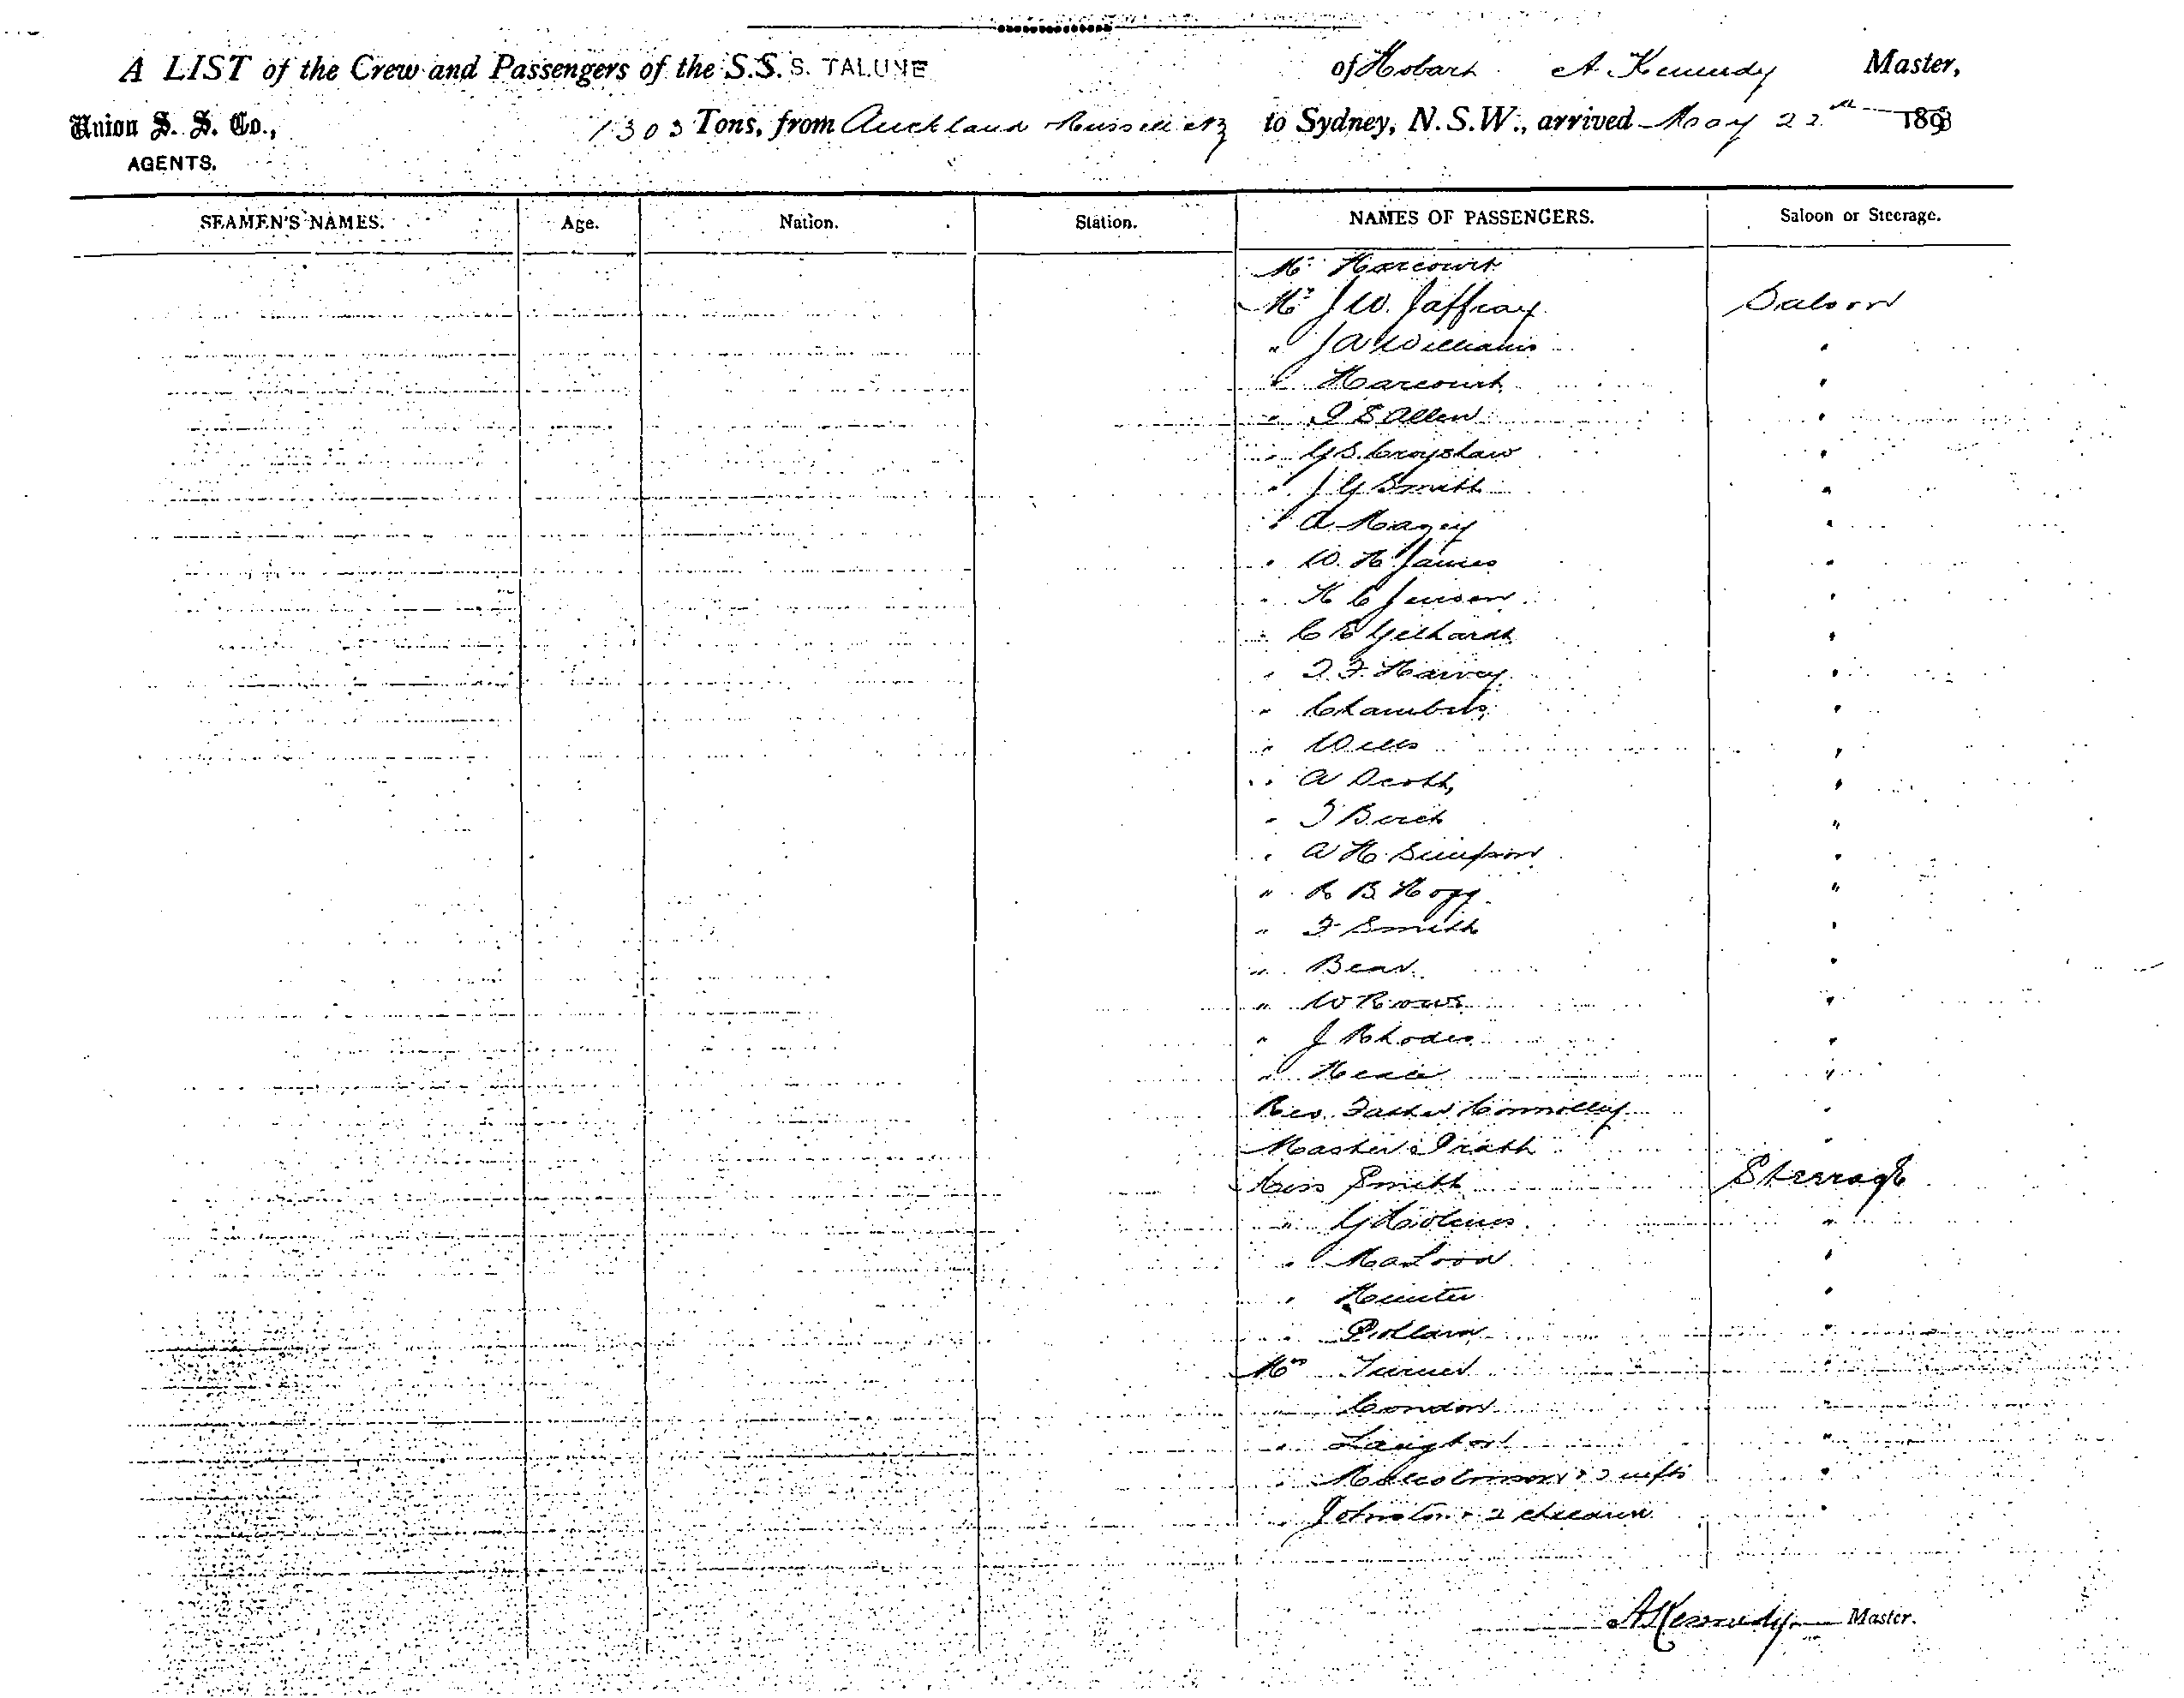 A LIST of the Crew and Passengers of the S.S. S. TALUNE of Hobart A. Kennedy Master,
Union S. S. Co., 1303 Tons, from Auckland Russell to Sydney, N.S.W., arrived May 22 1893
AGENTS.
SEAMEN'S NAMES. Age. Nation. Station. NAMES OF PASSENGERS. Saloon or Steerage.
Harcourt
Mr J W. Jaffray Saloon
" J A Williams "
" Harcourt "
" S Allen "
" G S. Croyshaw "
" J G Smith "
" A "
" W. H James "
" H C Jensen "
" C E "
" T. F. Harvey "
" Chambers "
" Wills "
" A Scott "
" T Birch "
" A H Simpson "
" R B Hogg "
" F Smith "
" Bear "
" W Rowe "
" J Rhodes "
" "
Rev. Father Connolly "
Master "
Miss Smith Steerage
" G "
" "
" Hunter "
" Pollard "
Mrs Turner "
" Condon "
" Langton "
" "
" Johnston & 2 children "
A Kennedy Master.